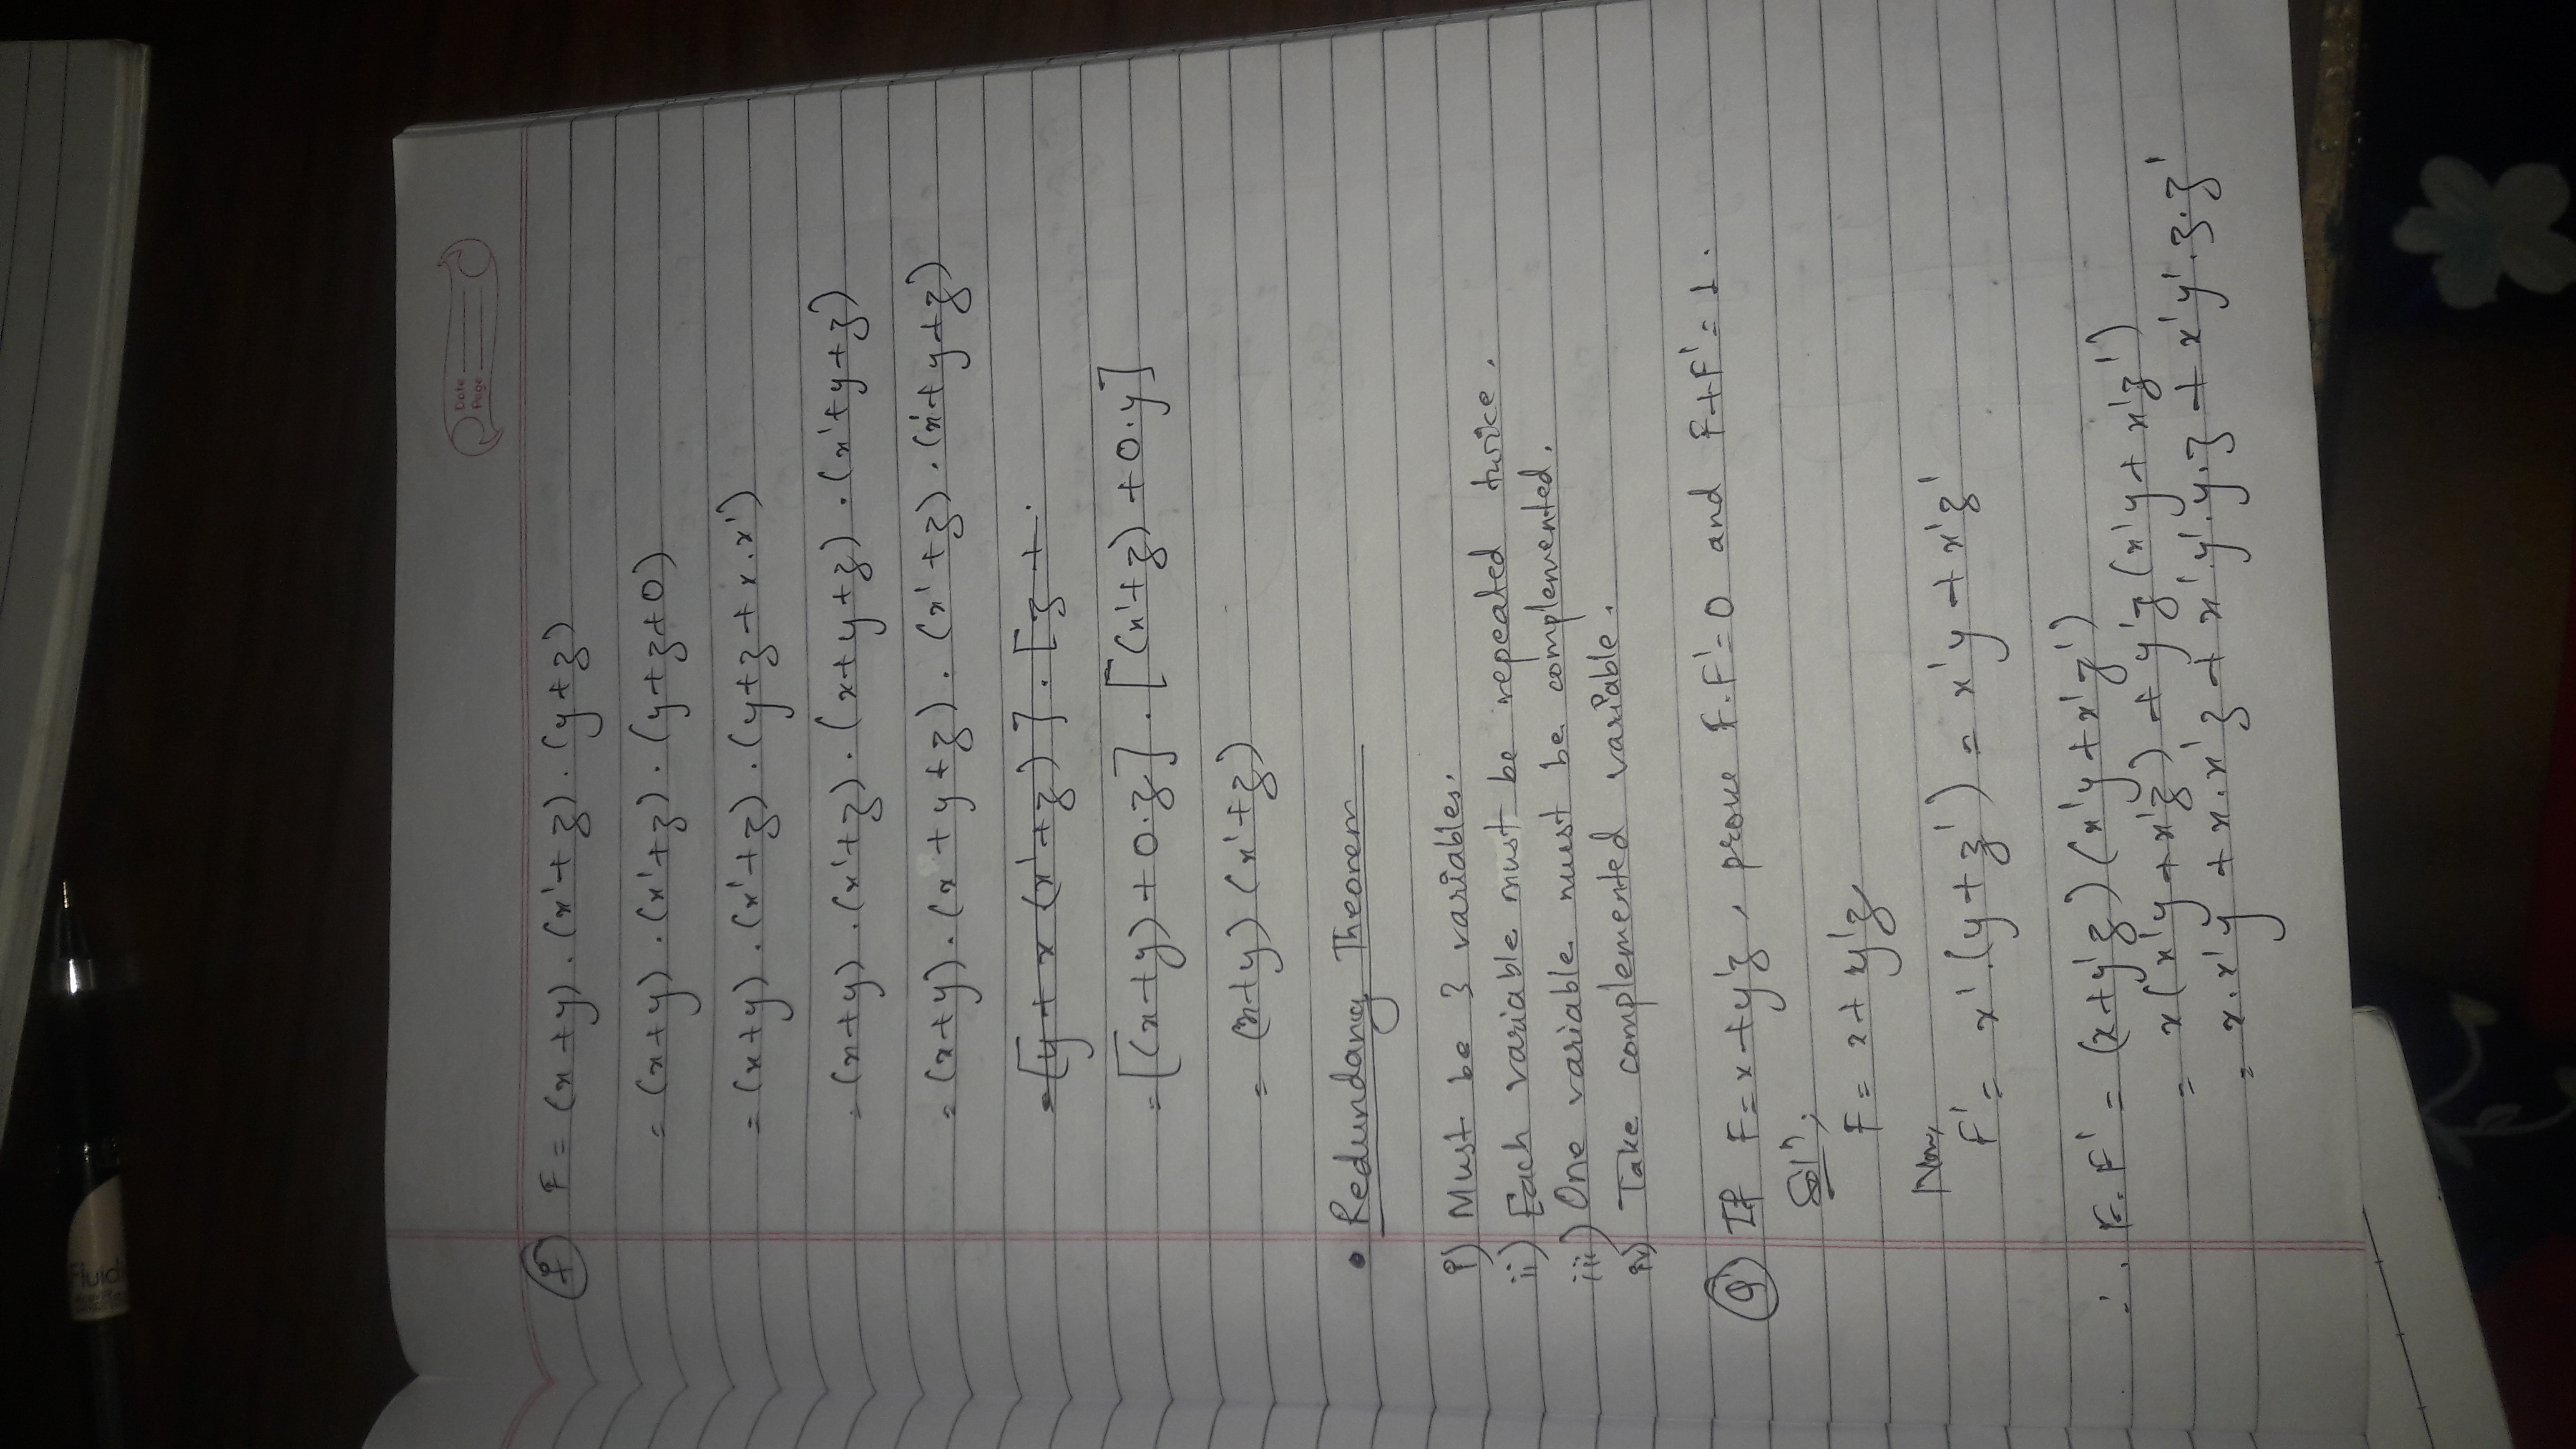 Date
Page
f) F = (x+y).(x'+z).(y+z)
= (x+y).(x'+z).(y+z+0)
= (x+y).(x'+z).(y+z+x.x')
= (x+y).(x'+z).(x+y+z).(x'+y+z)
= (x+y).(x+y+z).(x'+z).(x'+y+z)
= [y+x(x'+z)].[z+.
= [(x+y)+0.z].[(x'+z)+0.y]
= (x+y)(x'+z)
• Redundancy Theorem
i) Must be 3 variables.
ii) Each variable must be repeated twice.
iii) One variable must be complemented.
iv) Take complemented variable.
Q) If F=x+y'z, prove F.F'=0 and F+F'=1.
Solⁿ:
F = x+y'z
Now,
F' = x'.(y+z') = x'y+x'z'
∴ F.F' = (x+y'z)(x'y+x'z')
= x(x'y+x'z)+y'z(x'y+x'z')
= x.x'y + x.x'z + x'.y'.y.z + x'y'.z.z'